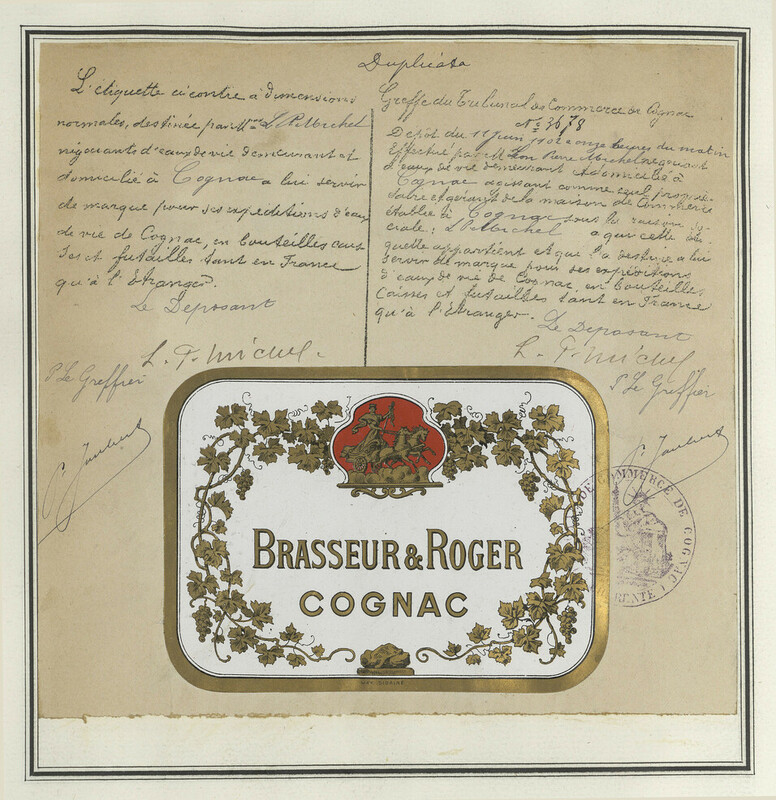 Duplicata
L'étiquette ci contre à dimensions
normales, destinée par Mr L P Michel
négociants d'eaux de vie demeurant et
domicilié à Cognac a lui servir
de marque pour ses expéditions d'eaux
de vie de Cognac, en bouteilles cais
ses et futailles tant en France
qu'à l'Etranger.
Le Déposant
L. P. Michel.
P Le Greffier
Greffe du Tribunal de Commerce de Cognac
No 3678
Dépôt du 11 juin onze heures du matin
Effectué par M Léon Pierre Michel négociant
d'eaux de vie demeurant et domicilié à
Cognac agissant comme seul proprié
taire et gérant de la maison de Commerce
établie à Cognac sous la raison so
ciale: L P Michel a qui cette éti
quette appartient et que l'a destine a lui
servir de marque pour ses expéditions
d'eaux de vie de Cognac, en bouteilles,
Caisses et futailles tant en France
qu'à l'Etranger.
Le Déposant
L. P. Michel
P Le Greffier
BRASSEUR & ROGER
COGNAC
DE COMMERCE DE COGNAC